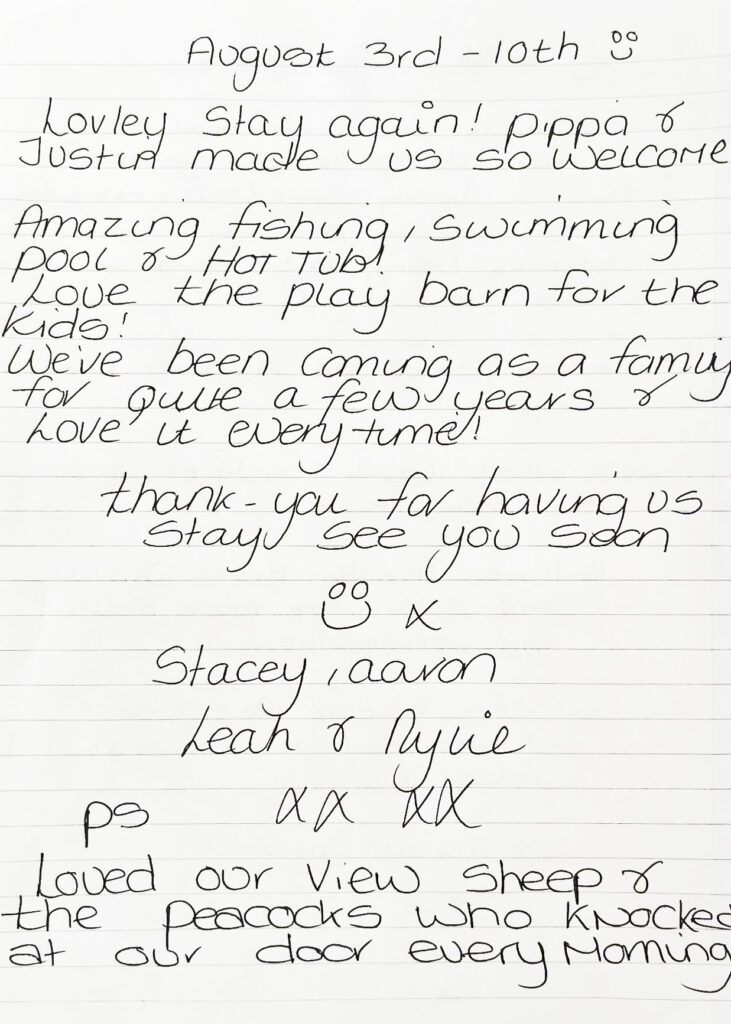 August 3rd - 10th ☺
Lovley Stay again! Pippa &
Justin made us so welcome
Amazing fishing, swimming
pool & HOT TUB!
Love the play barn for the
kids!
We've been coming as a family
for quite a few years &
Love it every time!
thank-you for having us
stay, see you soon
☺ x
Stacey, aaron
Leah & Rylie
xx xx
ps
Loved our view sheep &
the peacocks who knocked
at our door every Morning